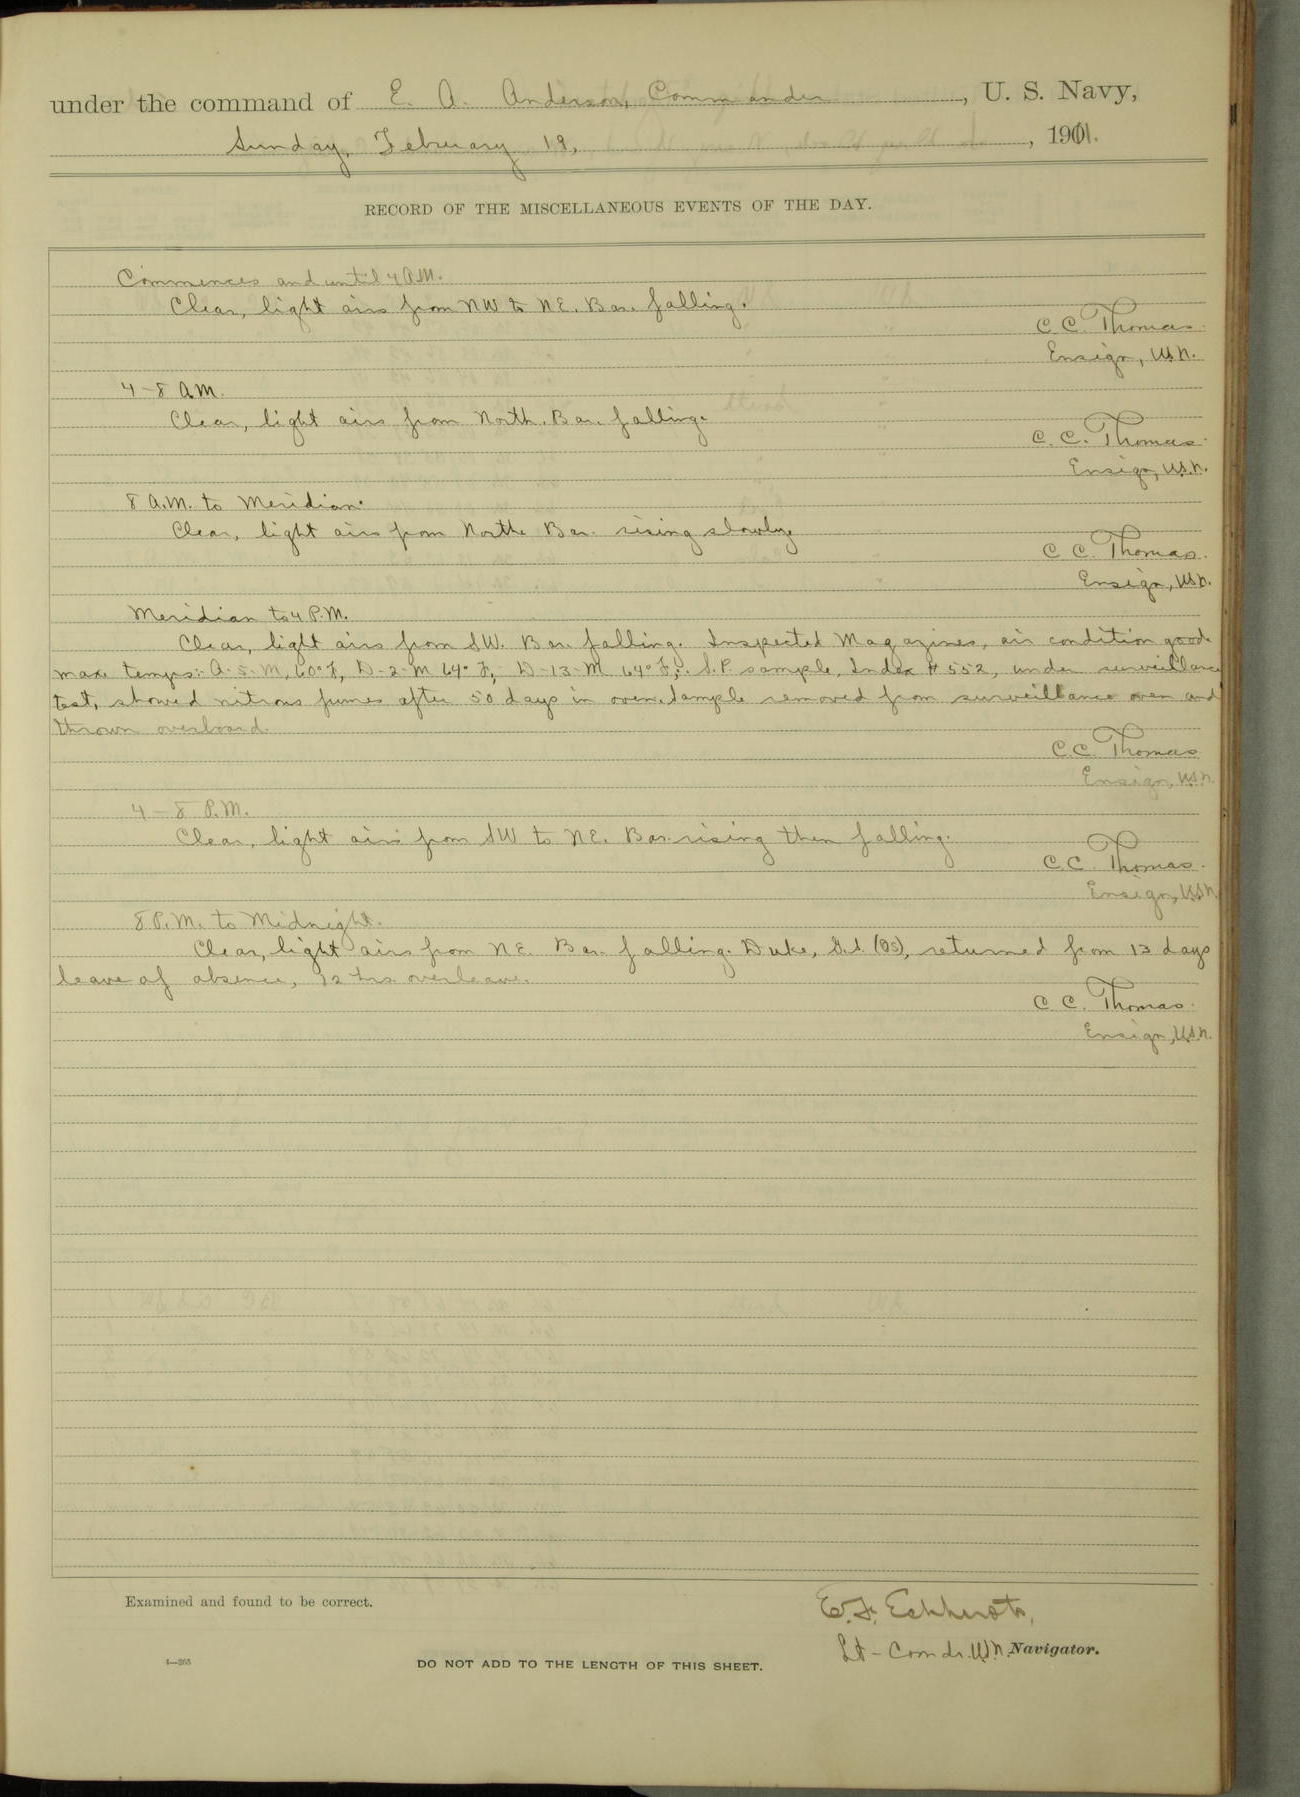 under the command of E. A. Anderson, Commander, U. S. Navy,
Sunday, February 19, 1911.
RECORD OF THE MISCELLANEOUS EVENTS OF THE DAY.
Commences and until 4 A.M.
Clear, light airs from NW to NE. Bar. falling.
C. C. Thomas
Ensign, U.S.N.
4-8 A.M.
Clear, light airs from North. Bar. falling.
C. C. Thomas
Ensign, U.S.N.
8 A.M. to Meridian.
Clear, light airs from North. Bar. rising slowly
C. C. Thomas.
Ensign, U.S.N.
Meridian to 4 P.M.
Clear, light airs from SW. Bar. falling. Inspected Magazines, air condition good.
max temps:- A-5-M, 60° F, D-2-M 64° F, D-13-M 64° F; S.P. sample, Index # 552, under surveillance
test, showed nitrous fumes after 50 days in oven. Sample removed from surveillance oven and
thrown overboard.
C. C. Thomas
Ensign, U.S.N.
4-8 P.M.
Clear, light airs from SW to NE. Bar. rising then falling.
C. C. Thomas.
Ensign, U.S.N.
8 P.M. to Midnight.
Clear, light airs from NE. Bar. falling. Duke, S.d. (OS), returned from 13 days
leave of absence, 12 hrs. overleave.
C. C. Thomas.
Ensign, U.S.N.
Examined and found to be correct.
Lt-Comdr. U.S.N. Navigator.
DO NOT ADD TO THE LENGTH OF THIS SHEET.